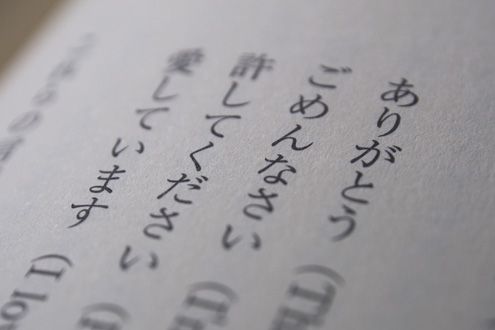 ありがとう (Th
ごめんなさい (I
許してください (
愛しています (I lo